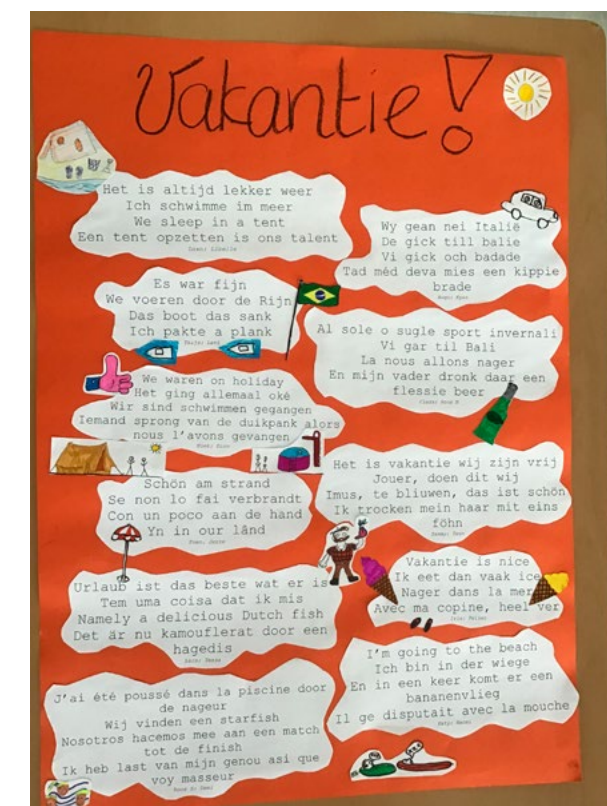 Vakantie!
Het is altijd lekker weer
Ich schwimme im meer
We sleep in a tent
Een tent opzetten is ons talent
Es war fijn
We voeren door de Rijn
Das boot das sank
Ich pakte a plank
We waren on holiday
Het ging allemaal oké
Wir sind schwimmen gegangen
Iemand sprong van de duikpank alors
nous l'avons gevangen
Schön am strand
Se non lo fai verbrandt
Con un poco aan de hand
Yn in our lând
Urlaub ist das beste wat er is
Tem uma coisa dat ik mis
Namely a delicious Dutch fish
Det är nu kamouflerat door een
hagedis
J'ai été poussé dans la piscine door
de nageur
Wij vinden een starfish
Nosotros hacemos mee aan een match
tot de finish
Ik heb last van mijn genou asi que
voy masseur
Wy gean nei Italië
De gick till balie
Vi gick och badade
Tad méd deva mies een kippie
brade
Al sole o sugle sport invernali
Vi gar til Bali
La nous allons nager
En mijn vader dronk daar een
flessie beer
Het is vakantie wij zijn vrij
Jouer, doen dit wij
Imus, te bliuwen, das ist schön
Ik trocken mein haar mit eins
föhn
Vakantie is nice
Ik eet dan vaak ice
Nager dans la mer
Avec ma copine, heel ver
I'm going to the beach
Ich bin in der wiege
En in een keer komt er een
bananenvlieg
Il ge disputait avec la mouche